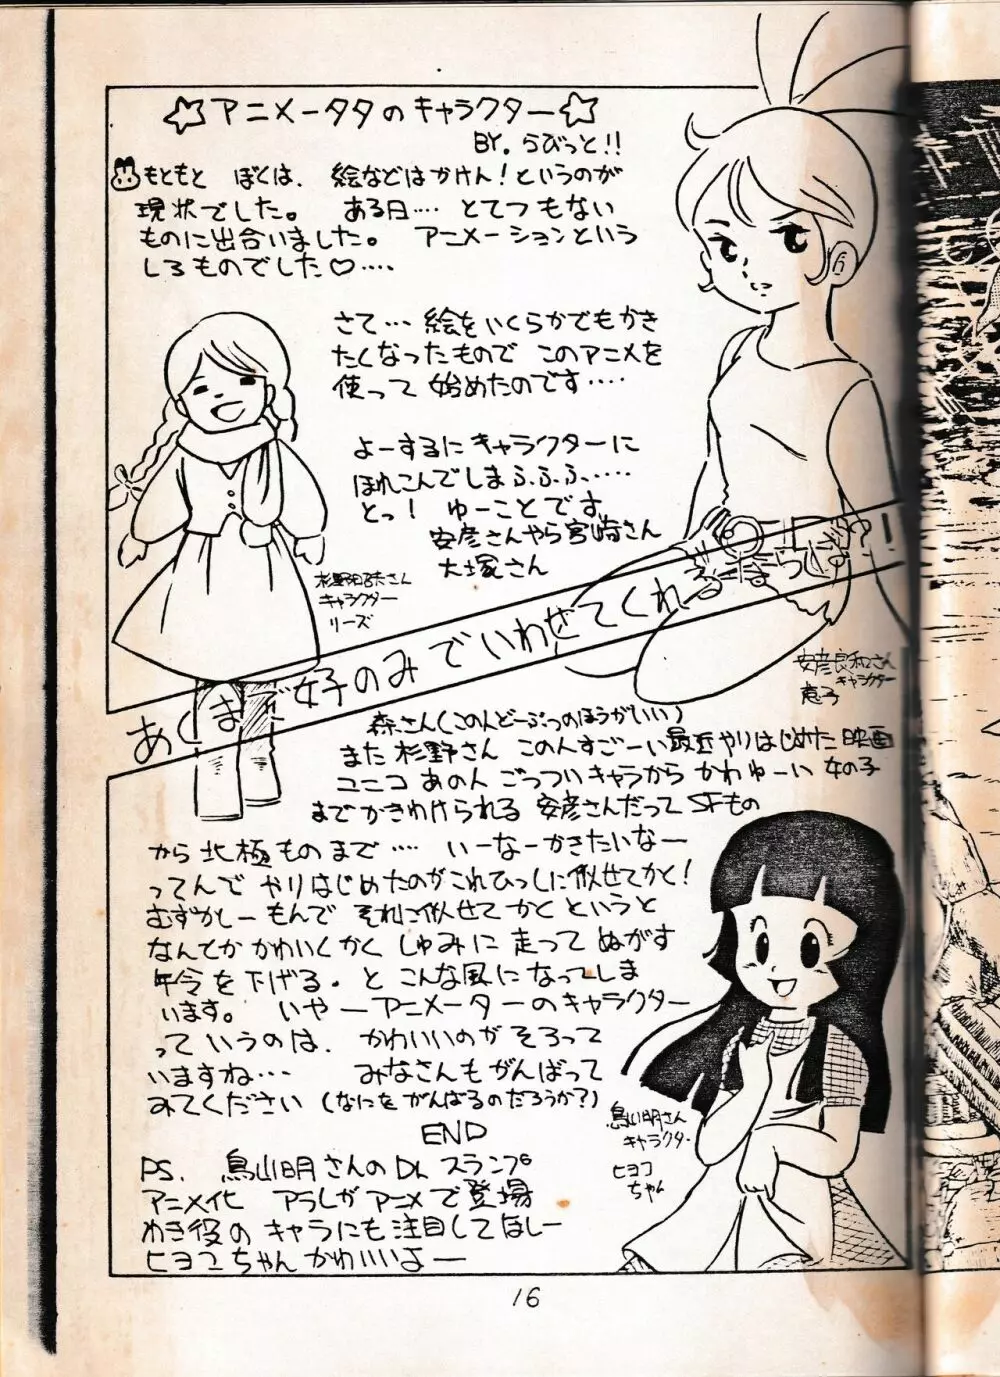 ☆アニメータタのキャラクター☆
BY. らびっと!!
もともと ぼくは、 絵などはかけん!というのが
現状でした。 ある日‥‥ とてつもない
ものに出合いました。 アニメーションという
しろものでした♡‥‥
さて… 絵をいくらかでもかき
たくなったもので このアニメを
使って 始めたのです‥‥
よーするにキャラクターに
ほれこんでしまふ、ふ、ふ、‥‥‥
とっ! ゆーことです。
安彦さんやら宮崎さん
大塚さん
杉野昭夫さん
キャラクター
リーズ
あくまで好のみでいわせてくれる
!!
安彦良和さん
キャラクター
恵子
森さん(この人どーぶつのほうがいい)
また 杉野さん この人すごーい最近やりはじめた映画
ユニコ あの人 ごっついキャラから かわゆーい 女の子
までかきわけられる 安彦さんだって SFもの
から 北極ものまで‥‥ いーなーかきたいなー
ってんで やりはじめたのがこれひっしに似せてかく!
むずかしーもんで それに似せて かく というと
なんてか かわいくかく しゅみに 走って ぬがす
年令を下げる。 と こんな風になってしま
います。 いやーアニメーターのキャラクター
っていうのは、 かわいいのが そろって
いますね… みなさんもがんばって
みてください (なにをがんばるのだろうか?)
END
PS. 鳥山明さんのDr.スランプ
アニメ化 アラレがアニメで登場
わき役の キャラにも注目してほしー
ヒヨコちゃん かわいいよー
鳥山明さん
キャラクター
ヒヨコ
ちゃん
16